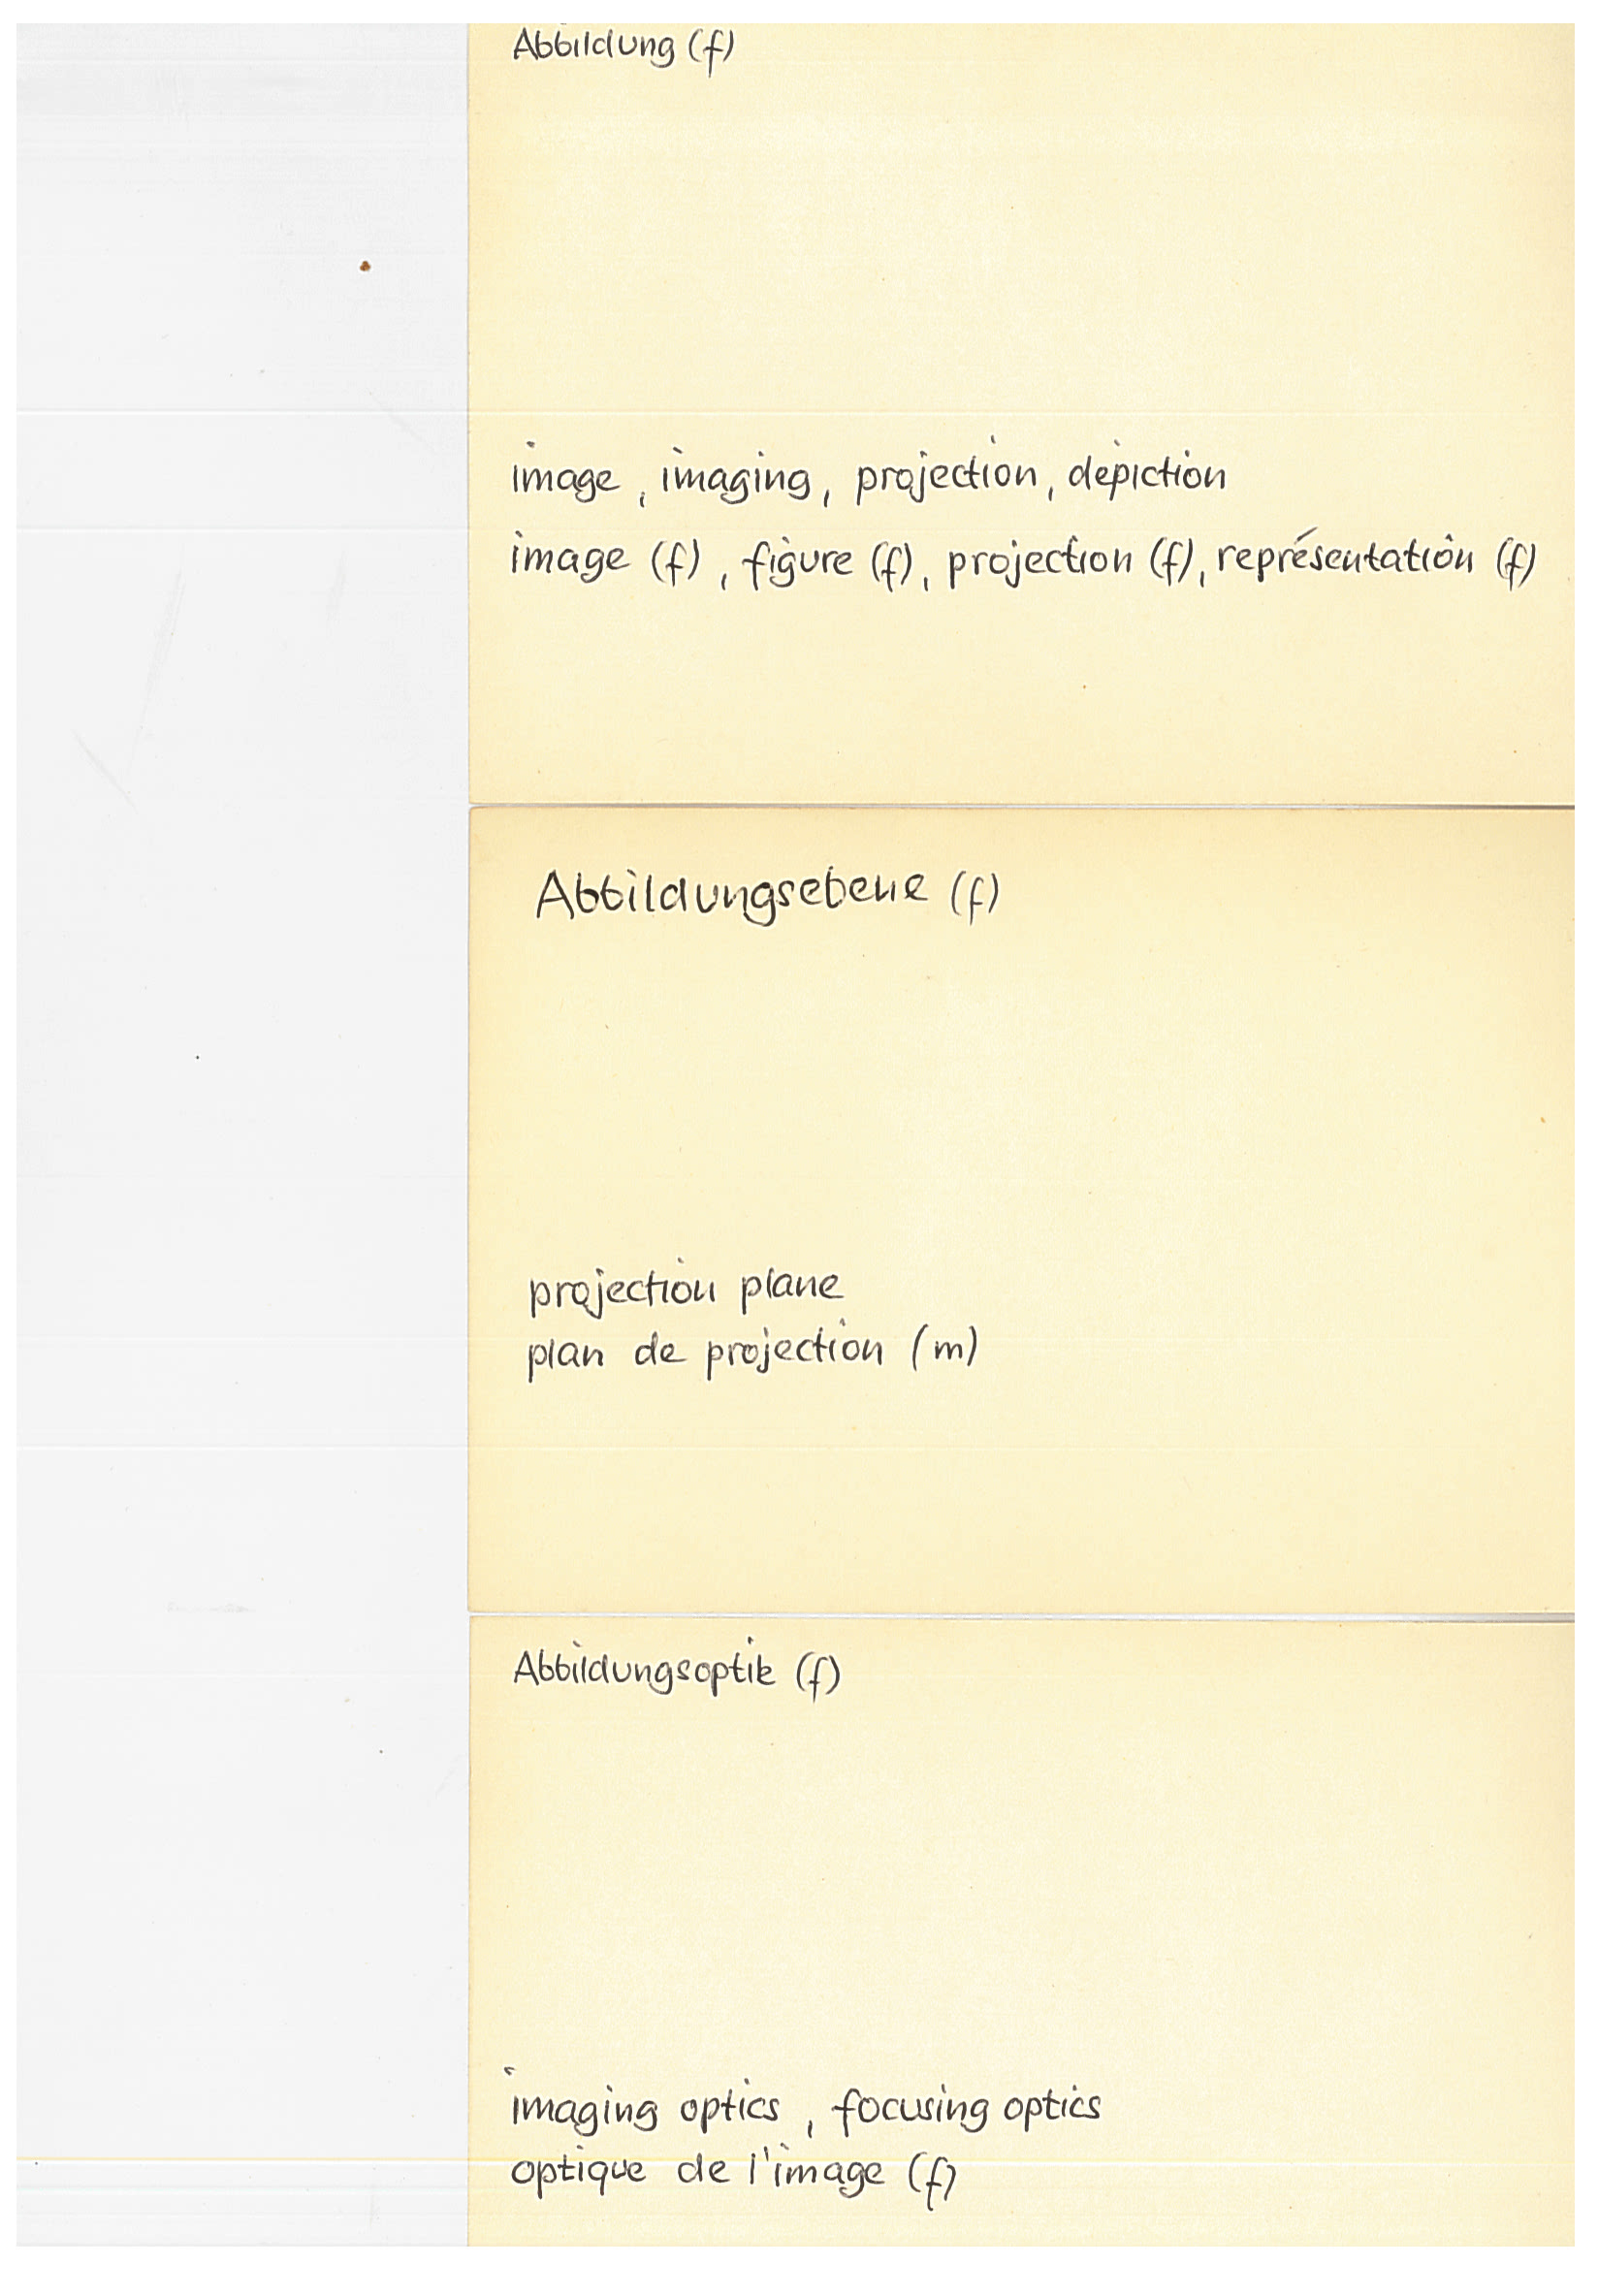 Abbildung (f)
image, imaging, projection, depiction
image (f), figure (f), projection (f), représentation (f)
Abbildungsebene (f)
projection plane
plan de projection (m)
Abbildungsoptik (f)
imaging optics, focusing optics
optique de l'image (f)